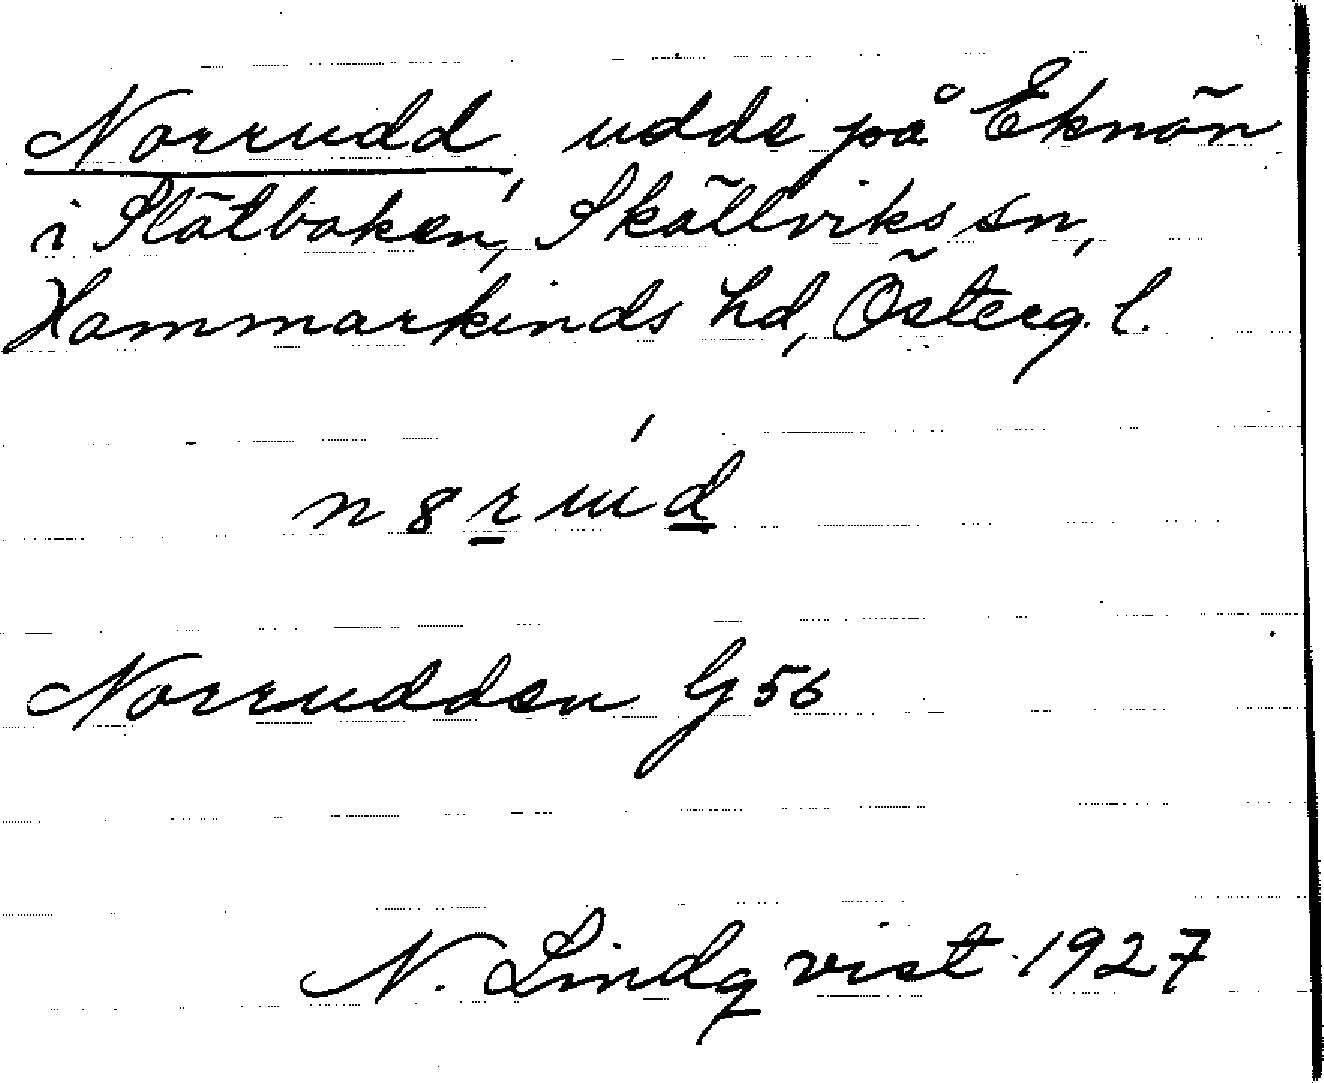 Norrudd, udde på Eknön
i Slätbaken, Skällviks sn,
Hammarkinds hd, Österg. l.
n8rud
Norrudden G56
N. Lindqvist 1927